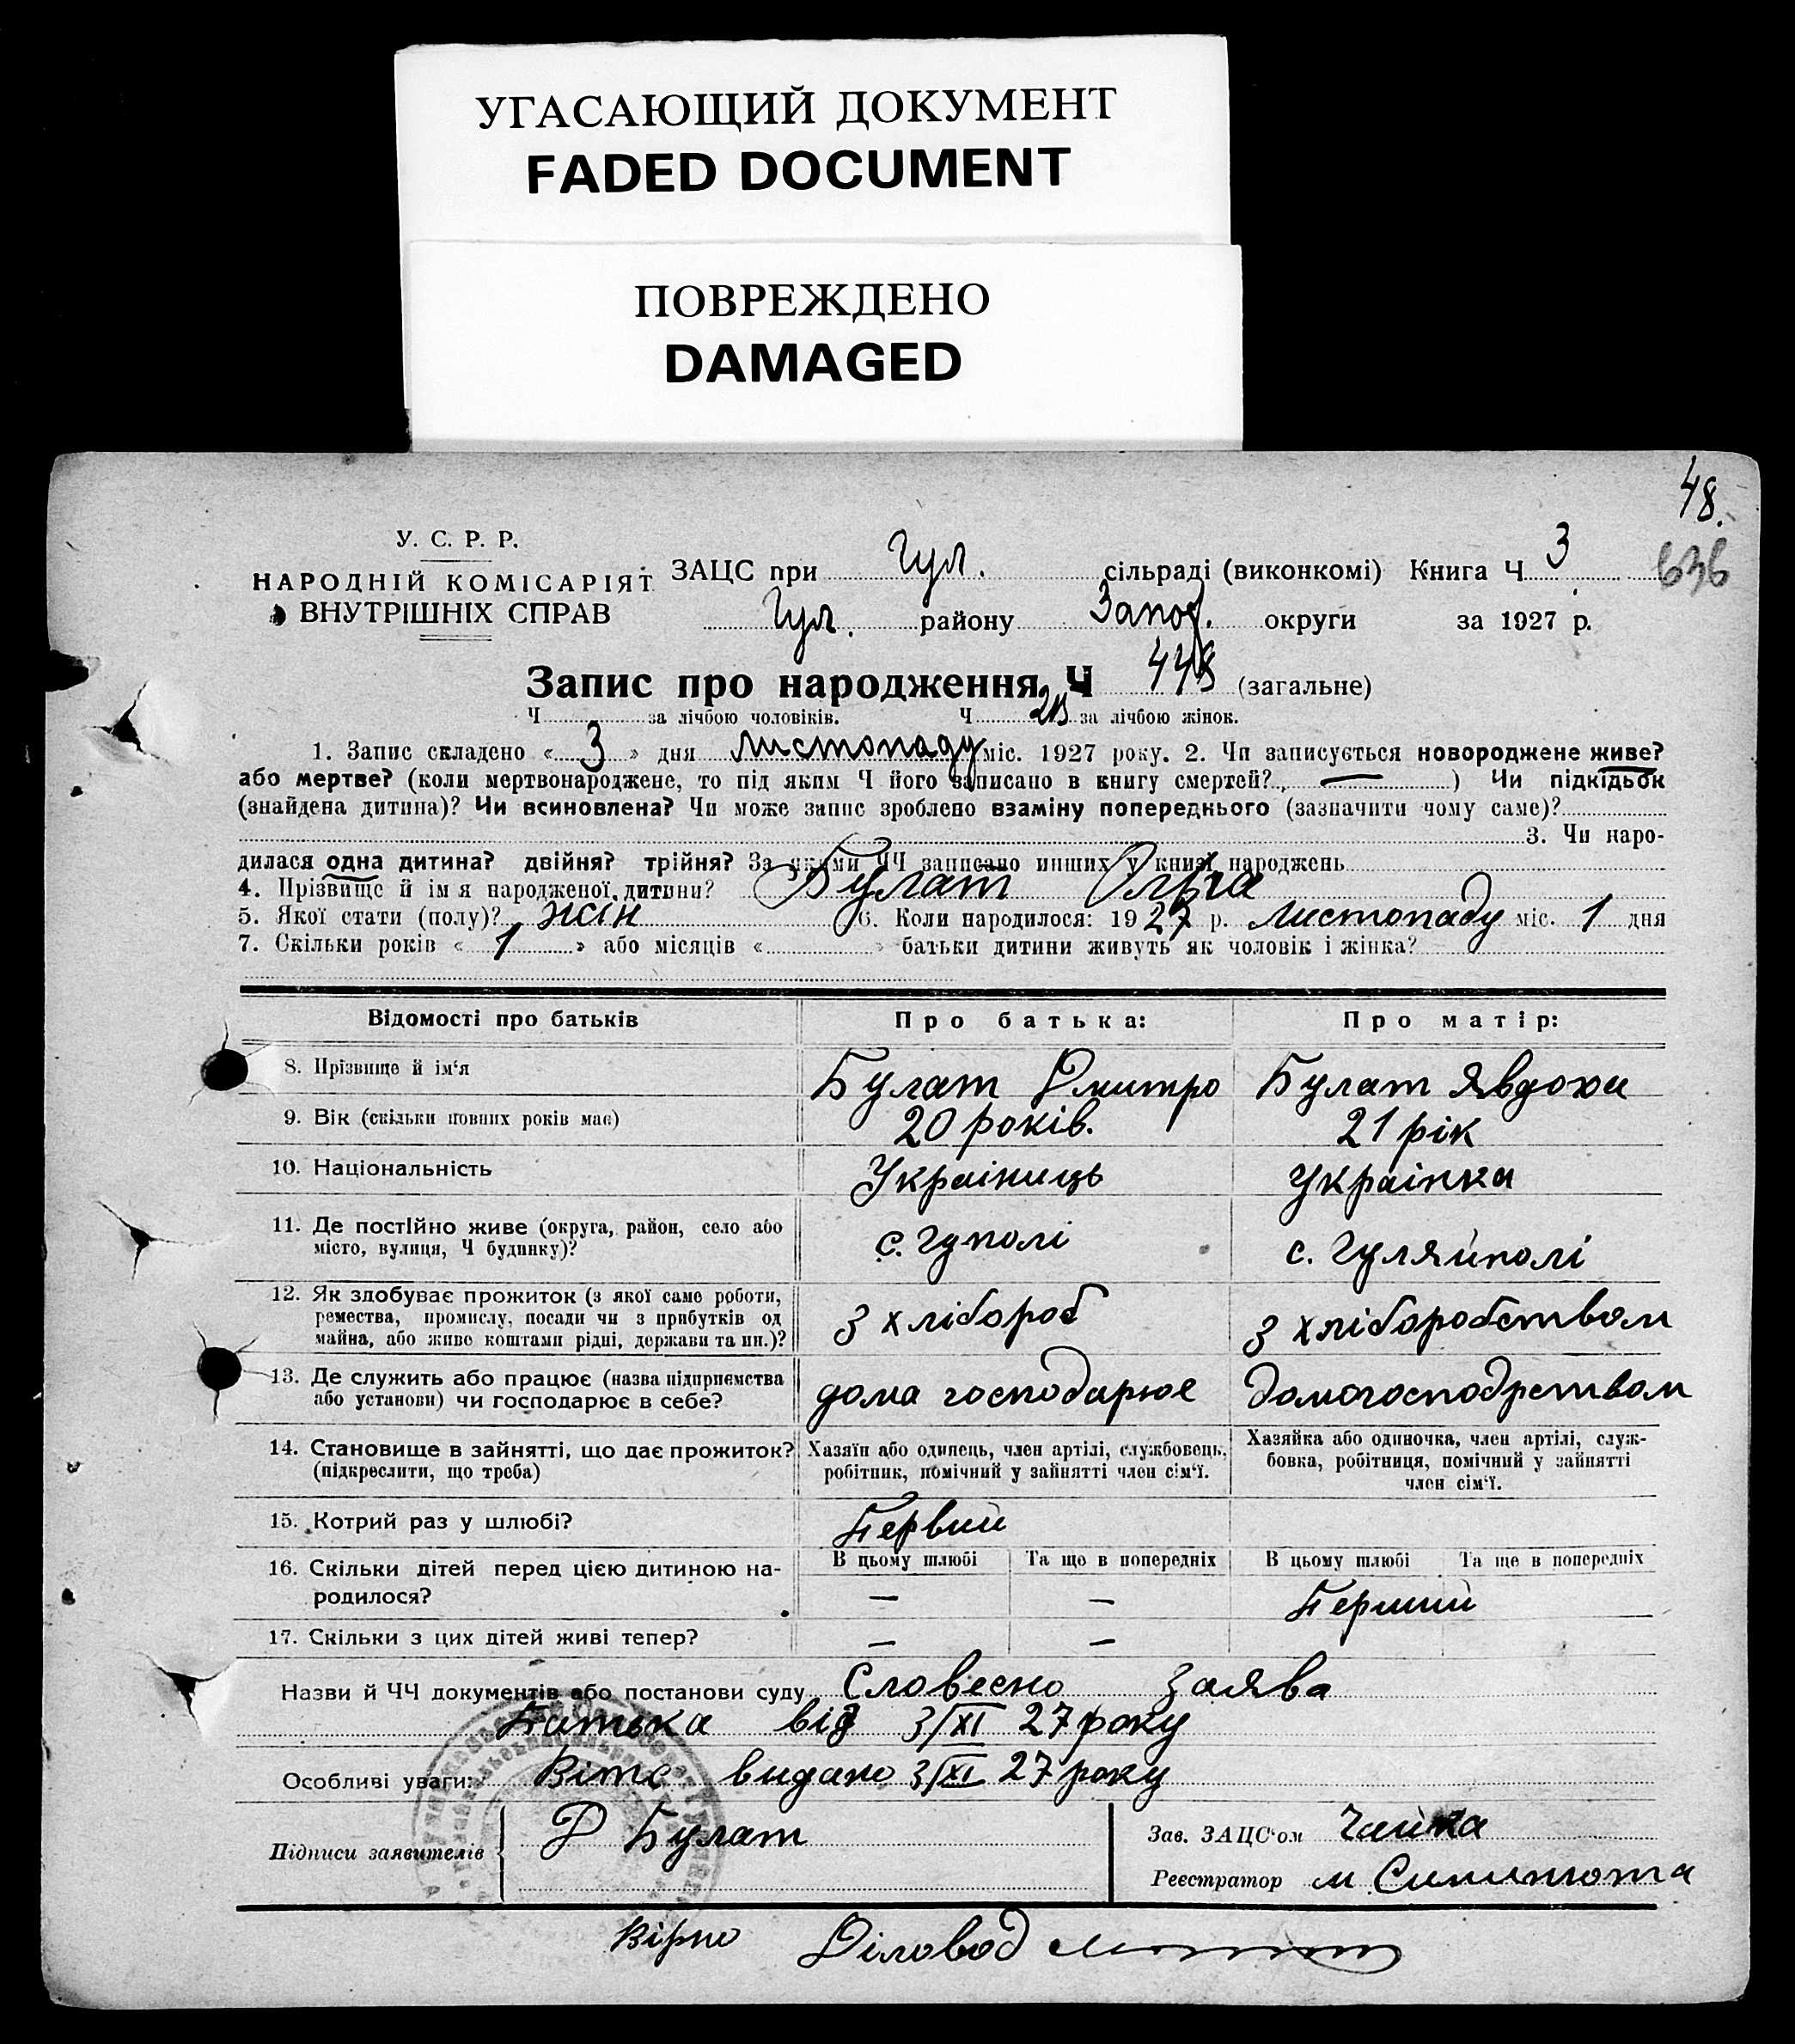 УГАСАЮЩИЙ ДОКУМЕНТ
FADED DOCUMENT
ПОВРЕЖДЕНО
DAMAGED
48.
636
У. С. Р. Р.
НАРОДНІЙ КОМІСАРІЯТ
ВНУТРІШНІХ СПРАВ
ЗАЦС при Гул. сільраді (виконкомі) Книга Ч 3
Гул. району Запор. округи за 1927 р.
Запис про народження Ч 448 (загальне)
Ч за лічбою чоловіків. Ч за лічбою жінок.
1. Запис складено « 3 » дня листопаду міс. 1927 року. 2. Чи записується новороджене живе?
або мертве? (коли мертвонароджене, то під яким Ч його записано в книгу смертей? — ) Чи підкідьок
(знайдена дитина)? Чи всиновлена? Чи може запис зроблено взаміну попереднього (зазначити чому саме)?
3. Чи наро-
дилася одна дитина? двійня? трійня? За якими ЧЧ записано инших у книзі народжень
4. Прізвище й ім я народженої дитини? Булат Ольга
5. Якої стати (полу)? жін 6. Коли народилося: 1927 р. листопаду міс. 1 дня
7. Скільки років « 1 » або місяців « » батьки дитини живуть як чоловік і жінка?
Відомості про батьків Про батька: Про матір:
8. Прізвище й ім'я Булат Дмитро Булат Явдоха
9. Вік (скільки повних років має) 20 років. 21 рік
10. Національність Українець Українка
11. Де постійно живе (округа, район, село або
місто, вулиця, Ч будинку)? с. Гуполі с. Гуляйполі
12. Як здобуває прожиток (з якої саме роботи,
ремества, промислу, посади чи з прибутків од
майна, або живе коштами рідні, держави та ин.)? з хлібороб з хліборобством
13. Де служить або працює (назва підприємства
або установи) чи господарює в себе? дома господарює домогосподрством
14. Становище в зайнятті, що дає прожиток?
(підкреслити, що треба)
Хазяїн або одинець, член артілі, службовець,
робітник, помічний у зайнятті член сім'ї.
Хазяйка або одиночка, член артілі, служ-
бовка, робітниця, помічний у зайнятті
член сім'ї.
15. Котрий раз у шлюбі? Первий
16. Скільки дітей перед цією дитиною на-
родилося?
В цьому шлюбі Та що в попередніх В цьому шлюбі Та ще в попередніх
— —
17. Скільки з цих дітей живі тепер? — —
Назви й ЧЧ документів або постанови суду Словесно заява
Батька від 3/XI 27 року
Особливі уваги: Витс видано 3/XI 27 року
Підписи заявителів Д Булат
Зав. ЗАЦС'ом Чайка
Реєстратор М
Вірно Діловод